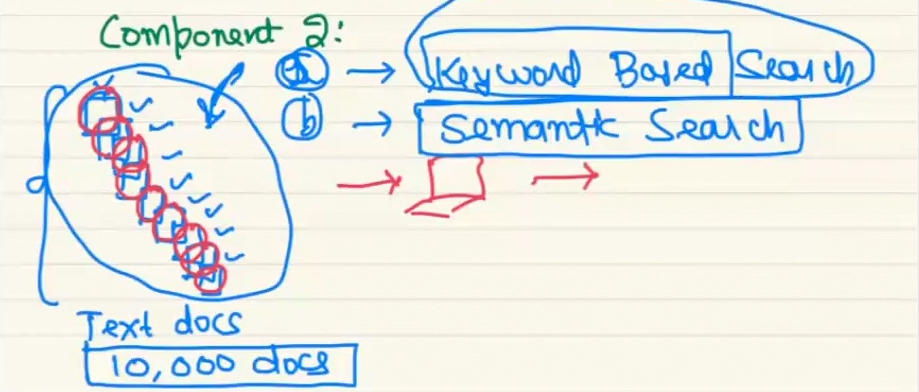 Component 2:
a → Keyword Based Search
b → Semantic Search
Text docs
10,000 docs